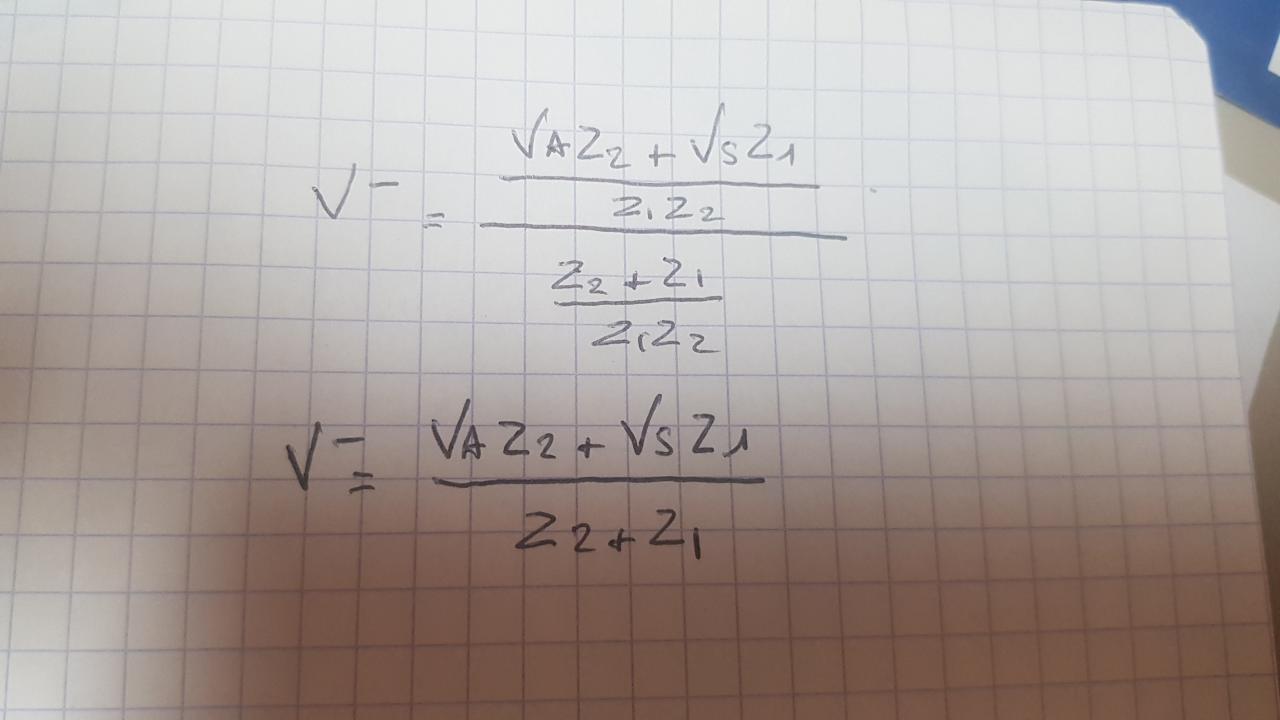 V⁻ = 
V_A Z_2 + V_S Z_1
Z_1 Z_2
Z_2 + Z_1
Z_1 Z_2
V⁻ = 
V_A Z_2 + V_S Z_1
Z_2 + Z_1